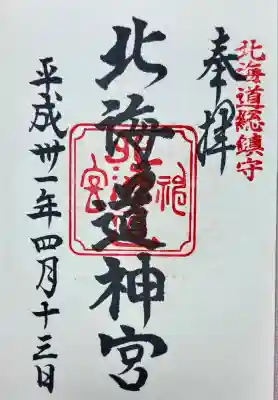 北海道総鎮守
奉拝
北海道神宮
平成卅一年四月十三日